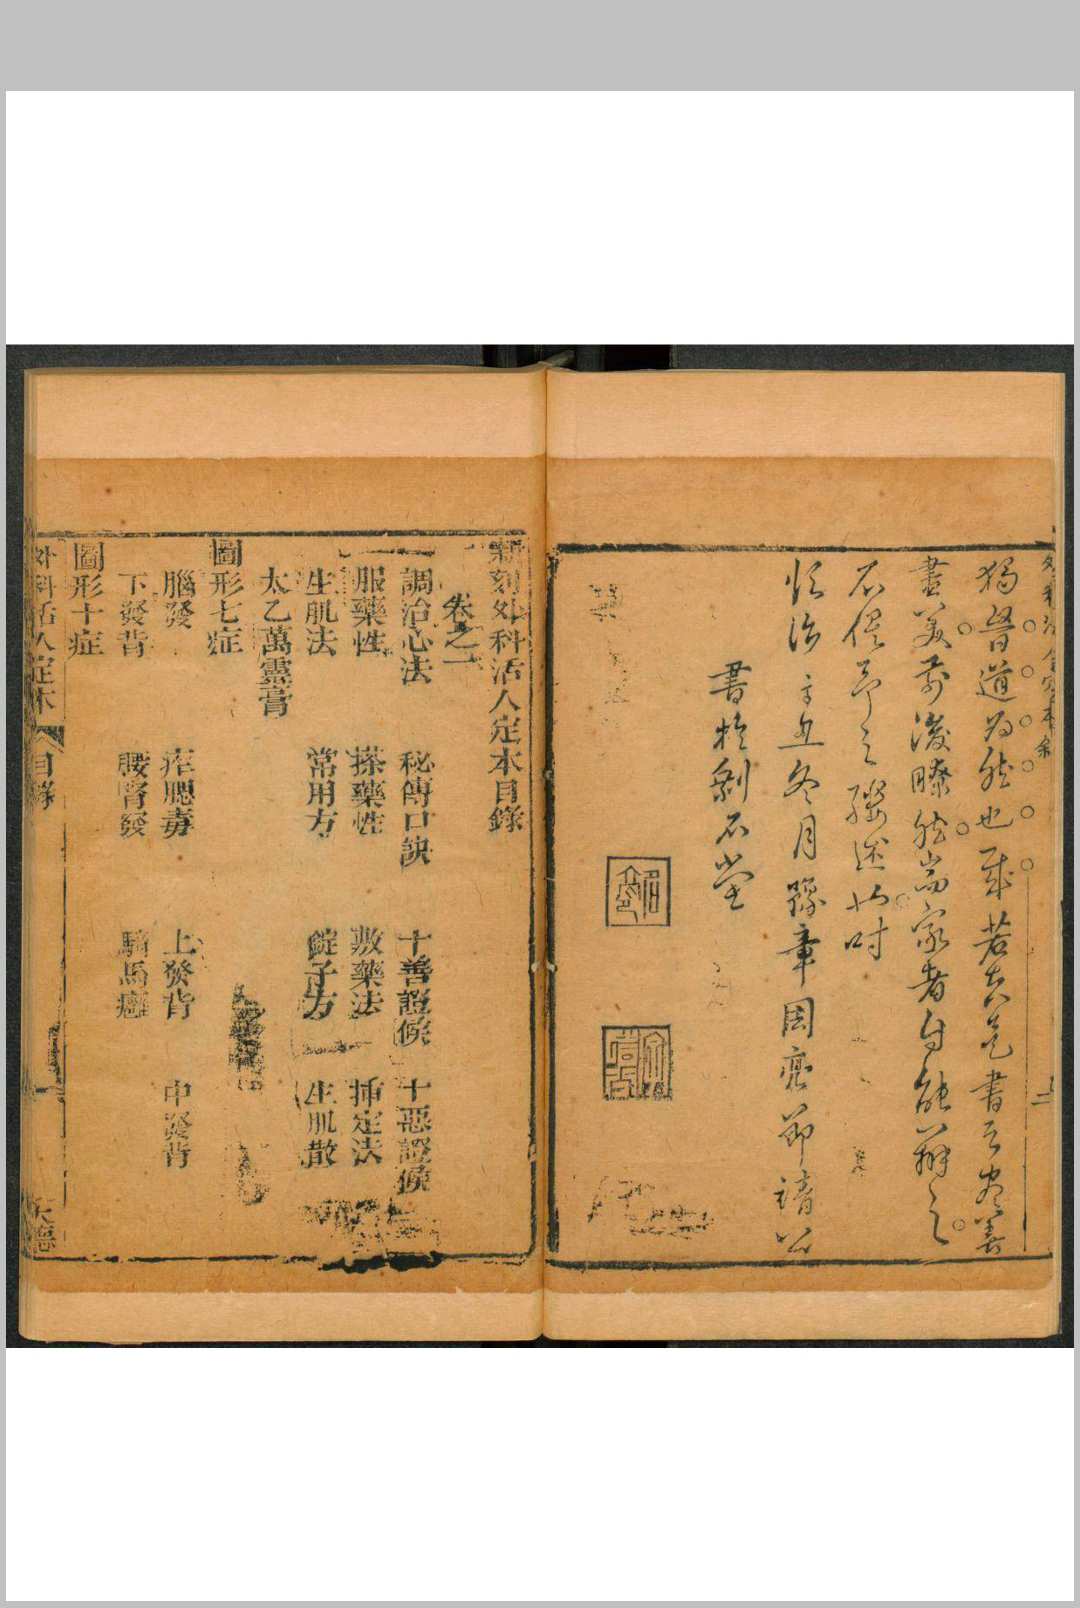 獨醫道為然也哉若夫是書之盡善
盡美前後瞭然耑家者自能辯之
不俟予之
順治辛丑冬月豫章周亮節靖公
書於劍石堂
新刻外科活人定本目錄
卷之一
調治心法 秘傳口訣 十善證候 十惡證候
服藥性 搽藥性 敷藥法 插定法
生肌法 常用方 錠子方 生肌散
太乙萬靈膏
圖形七症
腦發 痄腮毒 上發背 中發背
下發背 腰腎發 騎馬癰
圖形十症
外科活人定本 目錄 一